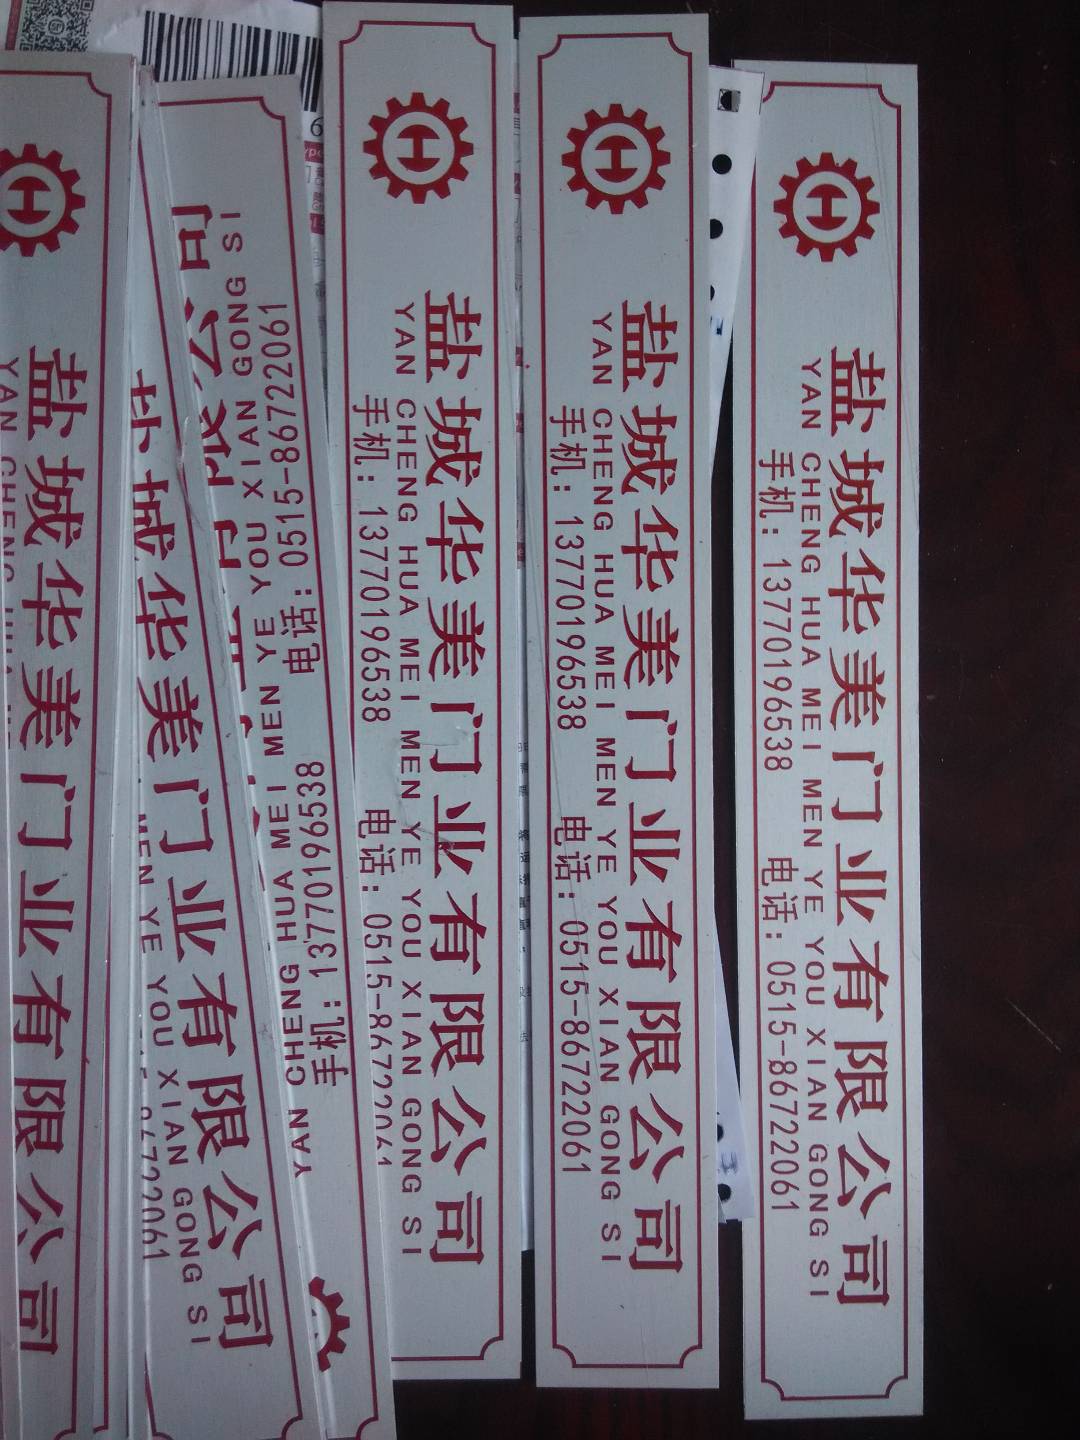 盐城华美门业有限公司
YAN CHENG HUA MEI MEN YE YOU XIAN GONG SI
手机：13770196538 电话：0515-86722061
盐城华美门业有限公司
YAN CHENG HUA MEI MEN YE YOU XIAN GONG SI
手机：13770196538 电话：0515-86722061
盐城华美门业有限公司
YAN CHENG HUA MEI MEN YE YOU XIAN GONG SI
手机：13770196538 电话：0515-86722061
YAN CHENG HUA MEI MEN YE YOU XIAN GONG SI
手机：13770196538 电话：0515-86722061
城华美门业有限公司
MEN YE YOU XIAN GONG SI
86722061
盐城华美门业有限公司
YAN CHENG